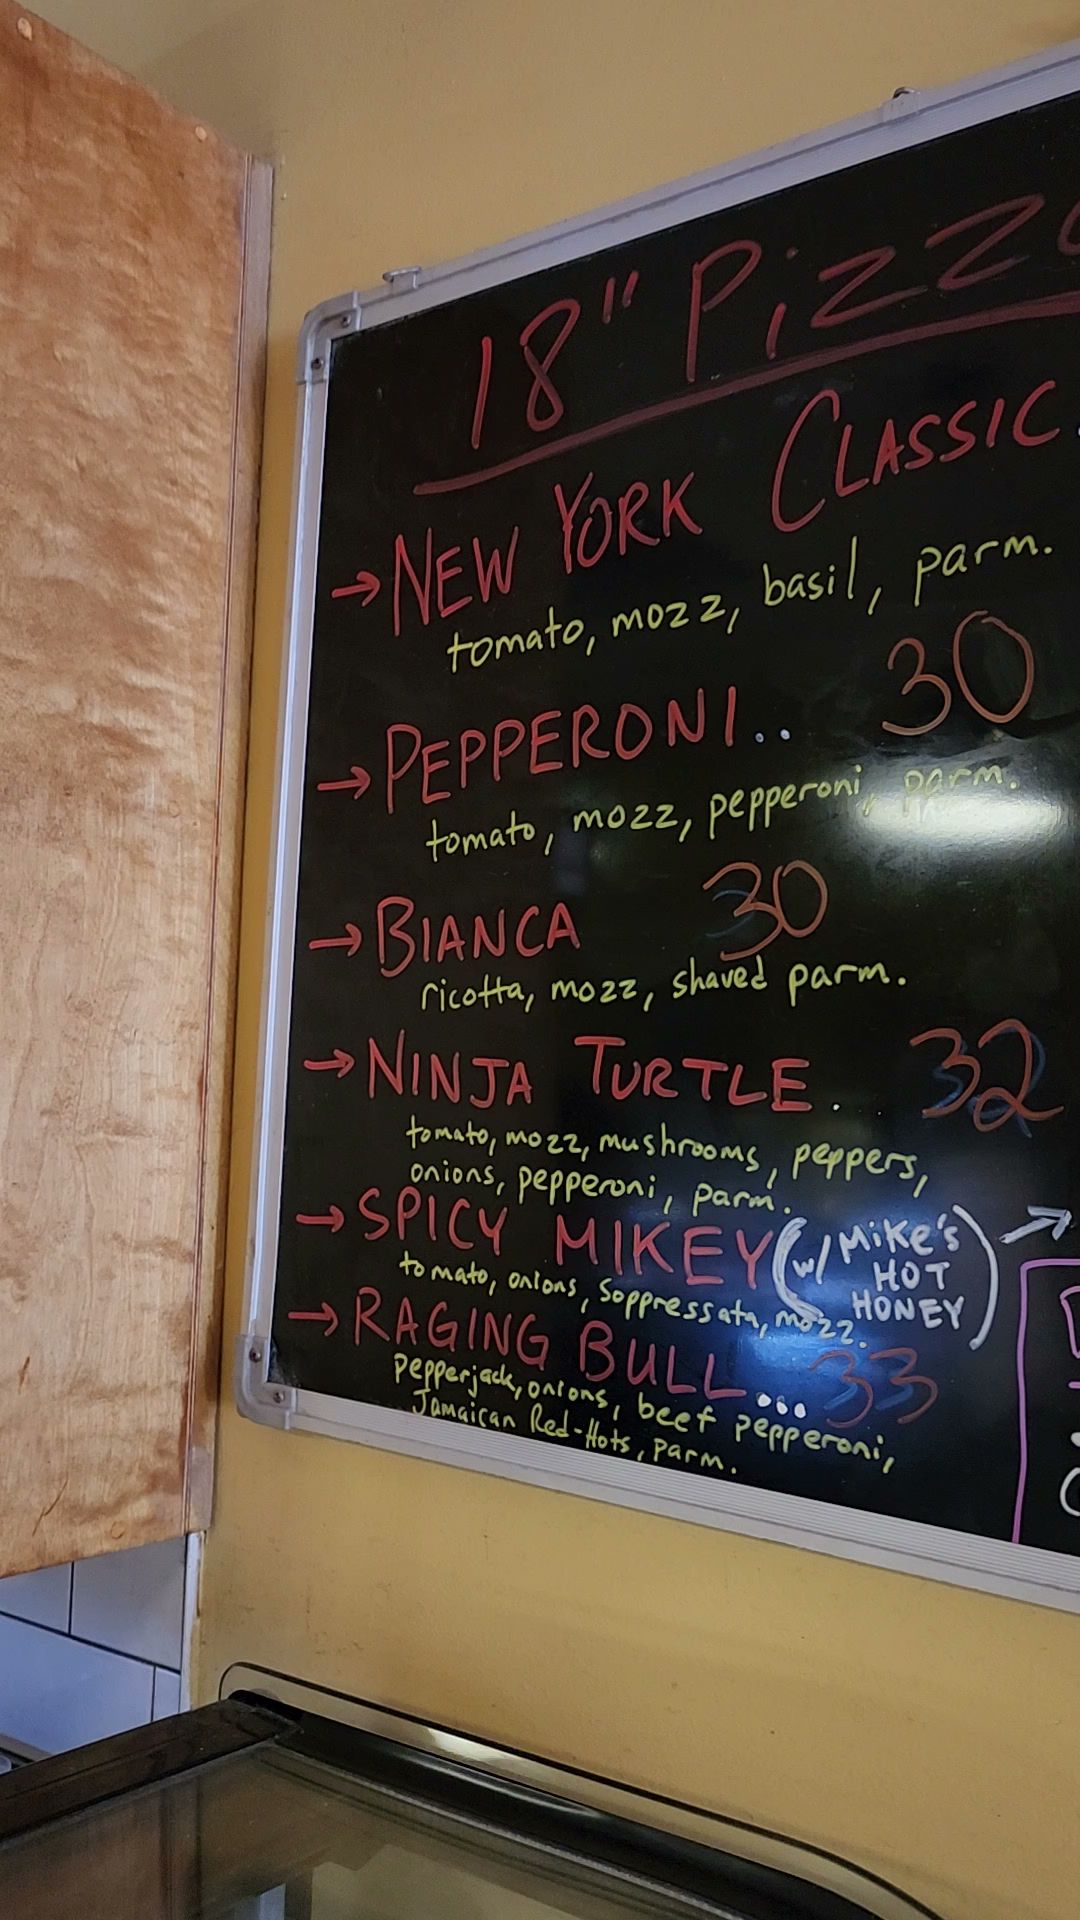 18" Pizz
→ NEW YORK CLASSIC.
tomato, mozz, basil, parm.
→ PEPPERONI.. 30
tomato, mozz, pepperoni, parm.
→ BIANCA 30
ricotta, mozz, shaved parm.
→ NINJA TURTLE.. 32
tomato, mozz, mushrooms, peppers,
onions, pepperoni, parm.
→ SPICY MIKEY (w/ MiKE'S HOT HONEY) →
tomato, onions, Soppressata, mozz.
→ RAGING BULL... 33
pepperjack, onions, beef pepperoni,
Jamaican Red-Hots, parm.